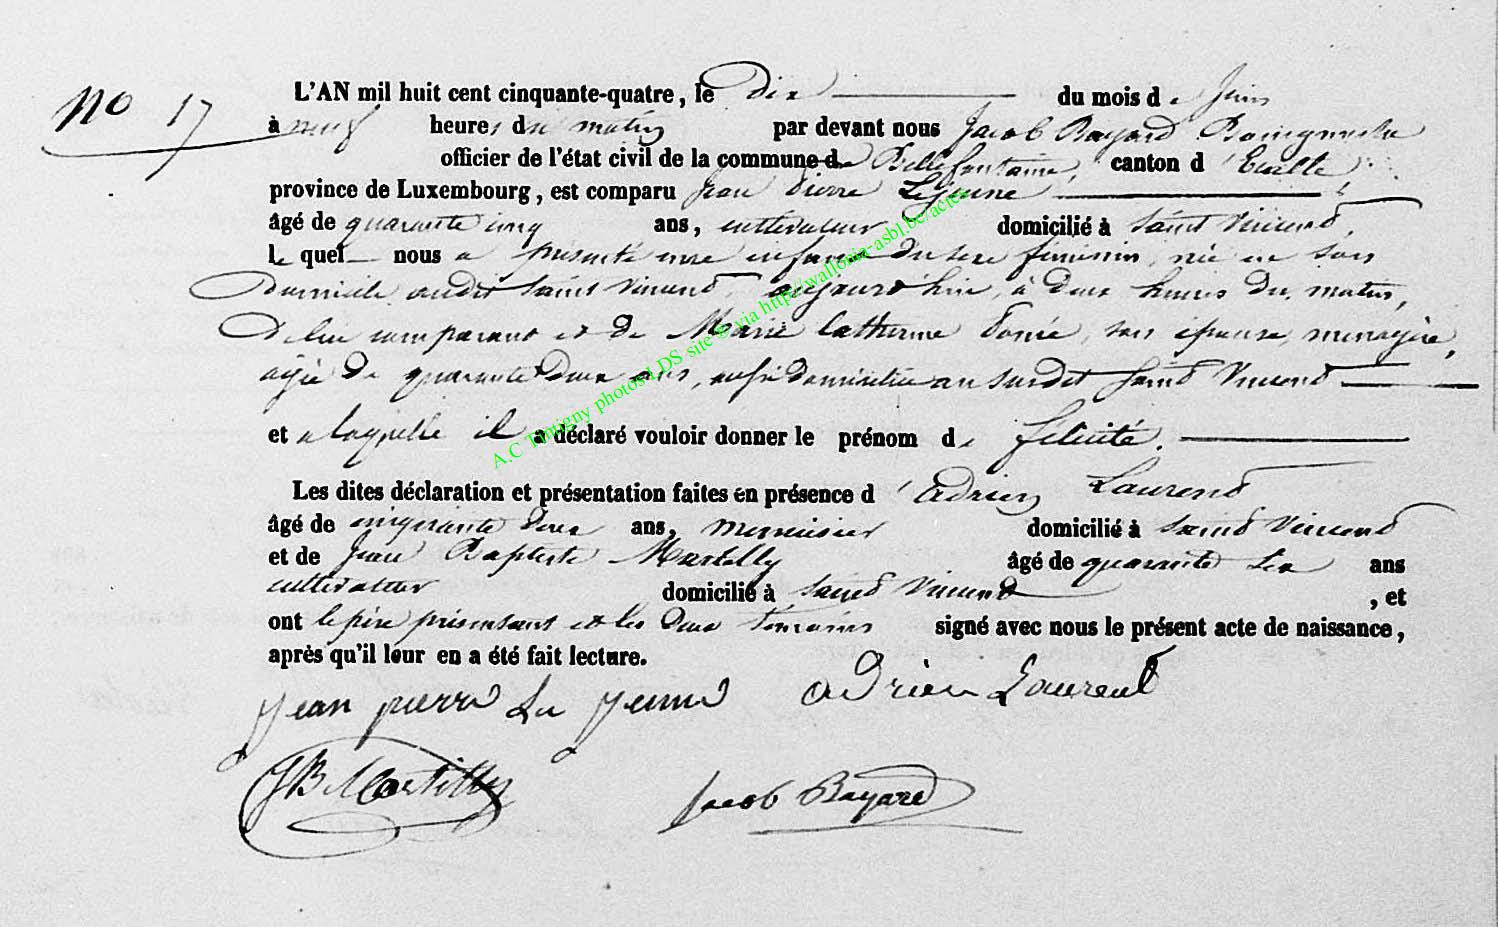 No 17
L'AN mil huit cent cinquante-quatre, le dix du mois de Juin
à neuf heures du matin par devant nous Jacob Bayard Bourgmestre
officier de l'état civil de la commune de Bellefontaine, canton d'Etalle,
province de Luxembourg, est comparu Jean Pierre Lejeune
âgé de quarante cinq ans, cultivateur domicilié à Saint Vincent,
Le quel nous a présenté une enfant du sexe féminin, née en son
domicile audit Saint Vincent, aujourd'hui, à deux heures du matin,
de lui comparant et de Marie Catherine son épouse, ménagère,
agée de quarante deux ans, aussi domiciliée au susdit Saint Vincent
et a laquelle il a déclaré vouloir donner le prénom de félicité.
Les dites déclaration et présentation faites en présence d'Adrien Laurent
âgé de cinquante deux ans, menuisier domicilié à Saint Vincent
et de Jean Baptiste Martilly âgé de quarante six ans
cultivateur domicilié à Saint Vincent, et
ont le père présentant et les deux témoins signé avec nous le présent acte de naissance,
après qu'il leur en a été fait lecture.
Jean pierre Le Jeune adrien Laurent
JB Martilly Jacob Bayard
A.C Tintigny photos LDS site © via http://wallonia-asbl.be/actes